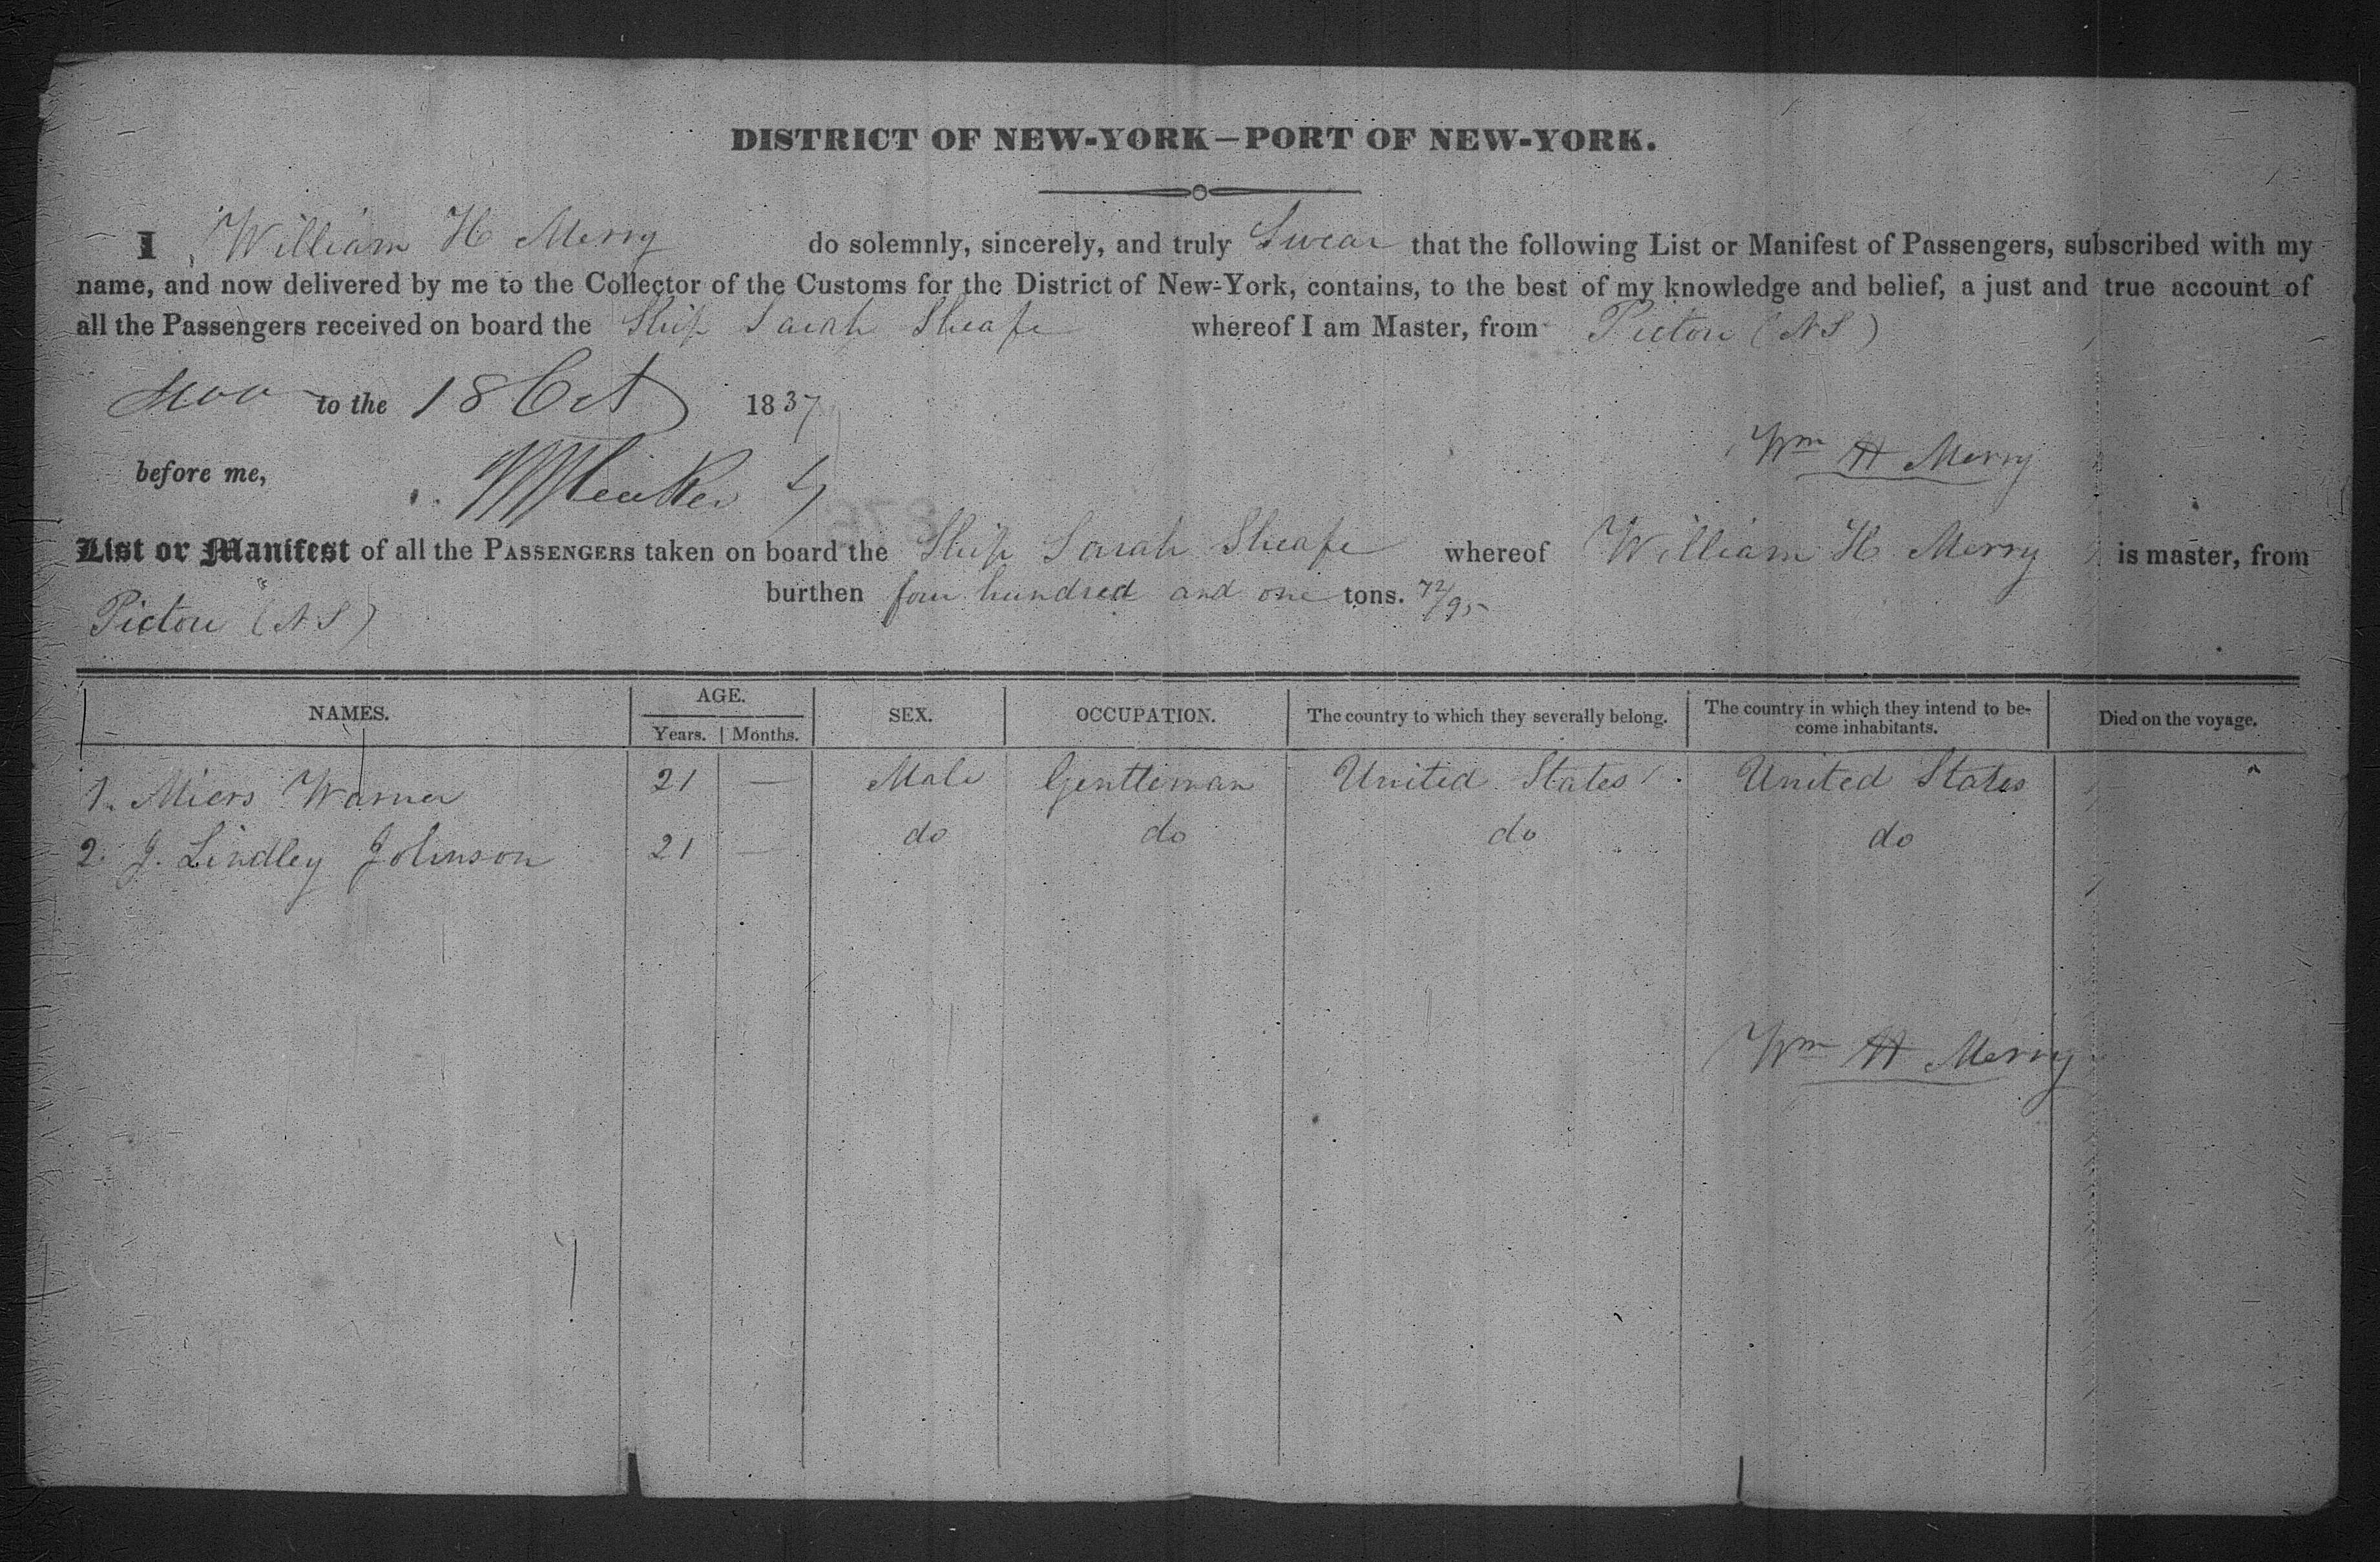 DISTRICT OF NEW-YORK—PORT OF NEW-YORK.
I William H Merry do solemnly, sincerely, and truly Swear that the following List or Manifest of Passengers, subscribed with my
name, and now delivered by me to the Collector of the Customs for the District of New-York, contains, to the best of my knowledge and belief, a just and true account of
all the Passengers received on board the Ship Sarah Sheafe whereof I am Master, from Pictou (NS)
to the 18 Oct 1837
Wm H Merry
before me,
List or Manifest of all the PASSENGERS taken on board the Ship Sarah Sheafe whereof William H Merry is master, from
Pictou (NS) burthen four hundred and one tons. 72/95
NAMES. AGE. Years. Months. SEX. OCCUPATION. The country to which they severally belong. The country in which they intend to become inhabitants. Died on the voyage.
1. Miers Warner 21 — Male Gentleman United States United States
2. J. Lindley Johnson 21 — do do do do
Wm H Merry